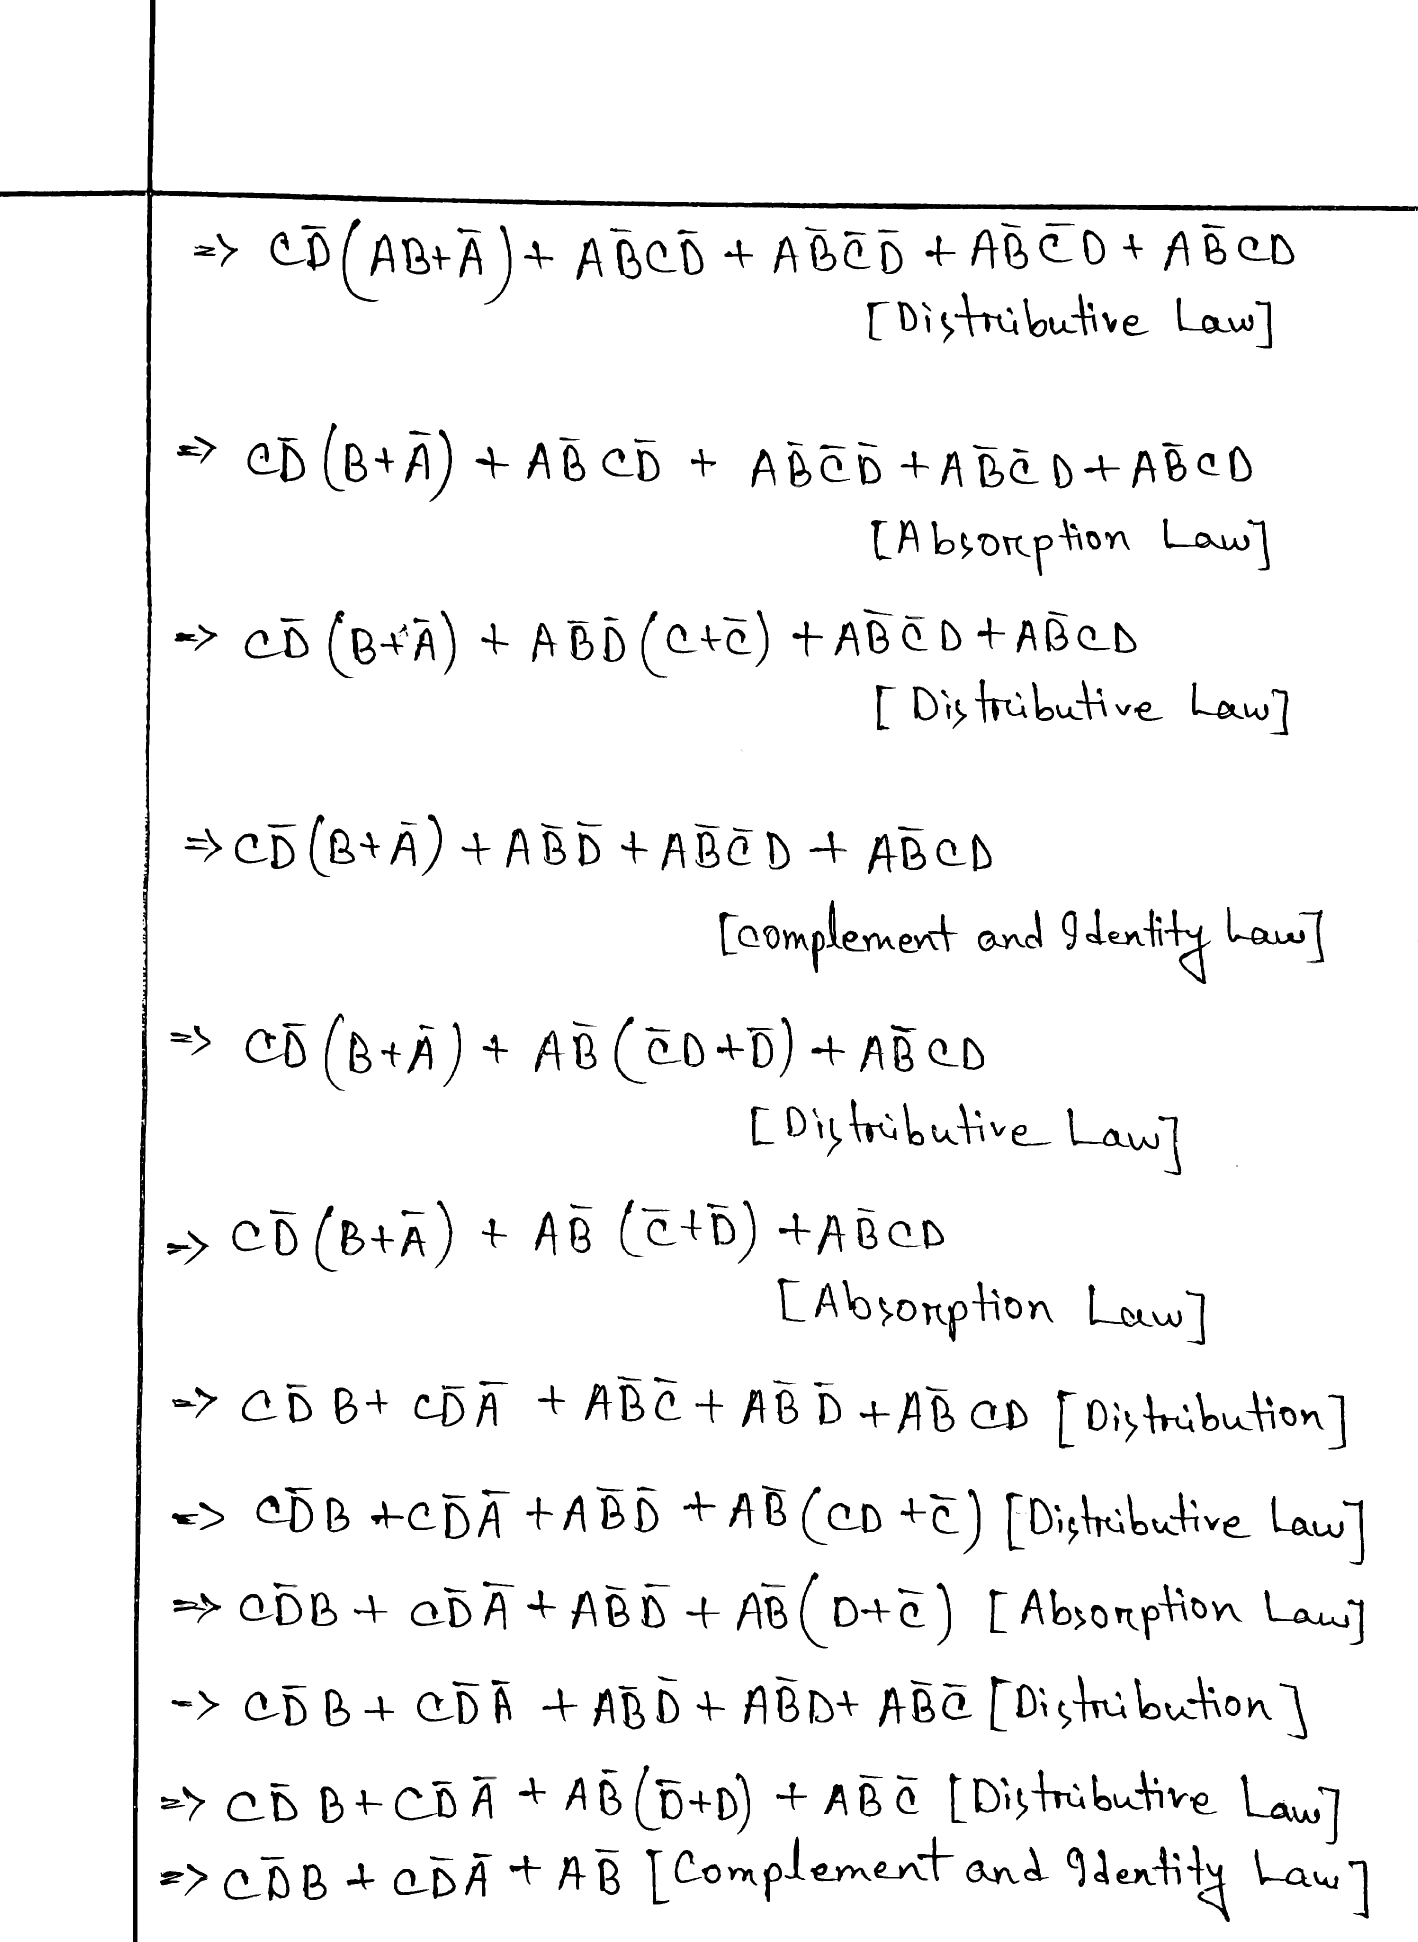 => CD̄(AB+Ā) + AB̄CD̄ + AB̄C̄D̄ + AB̄C̄D + AB̄CD
[Distributive Law]
=> CD̄(B+Ā) + AB̄CD̄ + AB̄C̄D̄ + AB̄C̄D + AB̄CD
[Absorption Law]
=> CD̄(B+Ā) + AB̄D̄(C+C̄) + AB̄C̄D + AB̄CD
[Distributive Law]
=> CD̄(B+Ā) + AB̄D̄ + AB̄C̄D + AB̄CD
[Complement and Identity Law]
=> CD̄(B+Ā) + AB̄(C̄D+D̄) + AB̄CD
[Distributive Law]
=> CD̄(B+Ā) + AB̄(C̄+D̄) + AB̄CD
[Absorption Law]
=> CD̄B + CD̄Ā + AB̄C̄ + AB̄D̄ + AB̄CD [Distribution]
=> CD̄B + CD̄Ā + AB̄D̄ + AB̄(CD+C̄) [Distributive Law]
=> CD̄B + CD̄Ā + AB̄D̄ + AB̄(D+C̄) [Absorption Law]
=> CD̄B + CD̄Ā + AB̄D̄ + AB̄D + AB̄C̄ [Distribution]
=> CD̄B + CD̄Ā + AB̄(D̄+D) + AB̄C̄ [Distributive Law]
=> CD̄B + CD̄Ā + AB̄ [Complement and Identity Law]